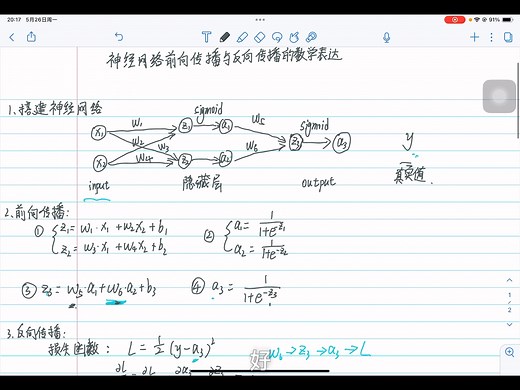 20:17 5月26日周一
91%
神经网络前向传播与反向传播的数学表达
1.搭建神经网络
sigmoid
sigmoid
x₁ w₁ z₁ a₁ w₅
w₂ w₃ z₃ a₃ y
x₂ w₄ z₂ a₂ w₆
input 隐藏层 output 真实值
2.前向传播:
① { z₁ = w₁·x₁ + w₂x₂ + b₁
z₂ = w₃·x₁ + w₄x₂ + b₂
② { a₁ = 1/(1+e^-z₁)
a₂ = 1/(1+e^-z₂)
③ z₃ = w₅·a₁ + w₆·a₂ + b₃ ④ a₃ = 1/(1+e^-z₃)
1/2
3.反向传播:
损失函数: L = 1/2 (y-a₃)² w₆→z₃→a₃→L
好